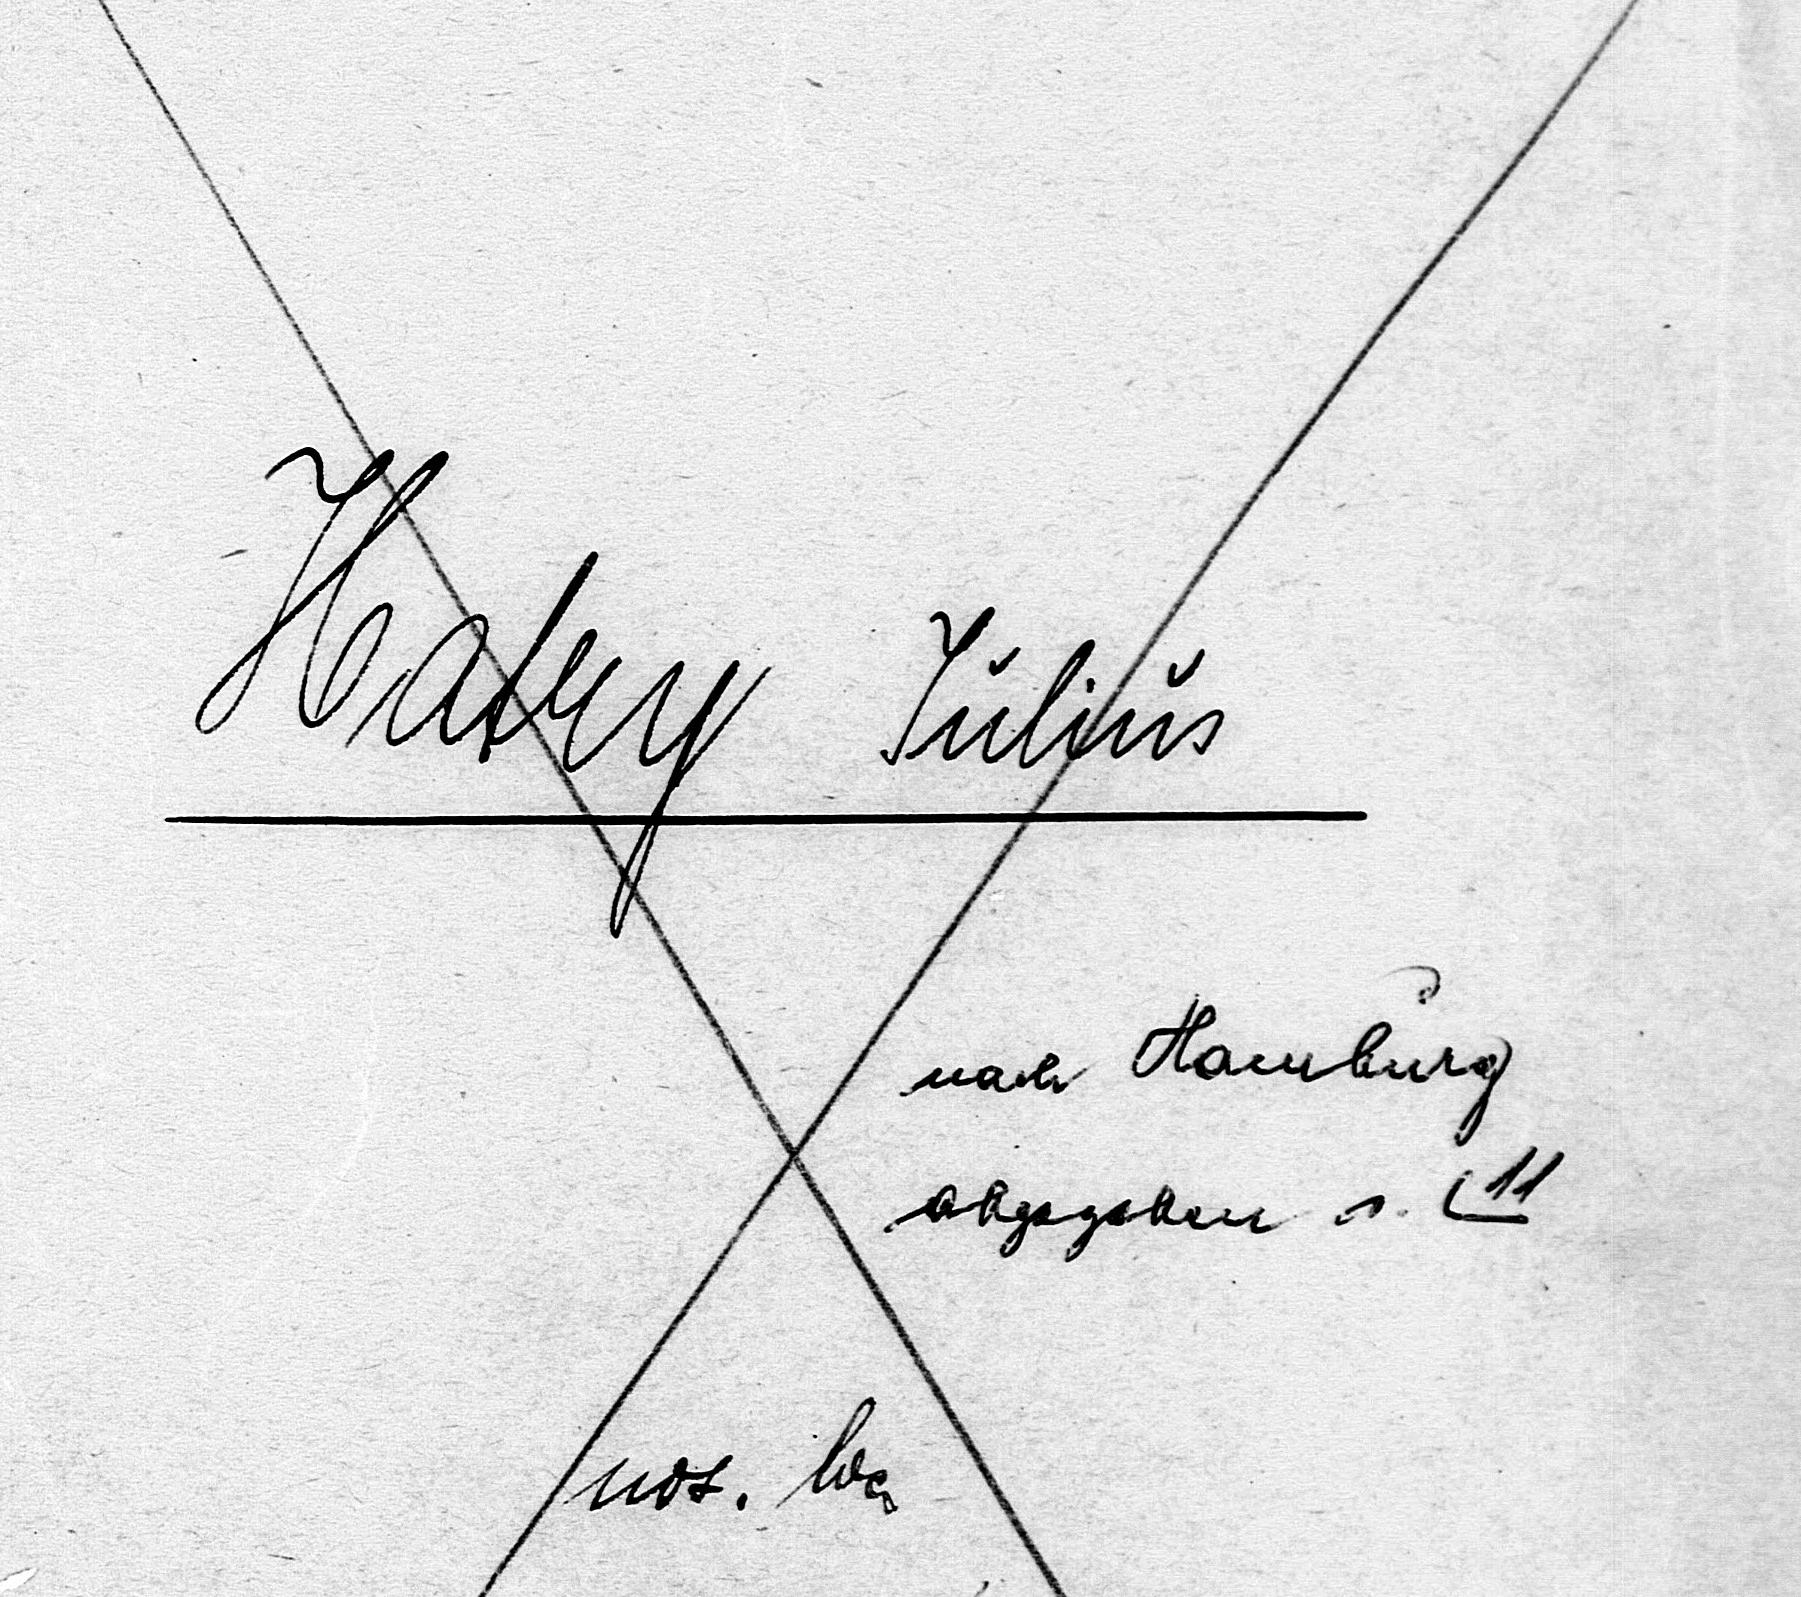 Hatry Julius
nach Hamburg
abgegeben s. 11
not.